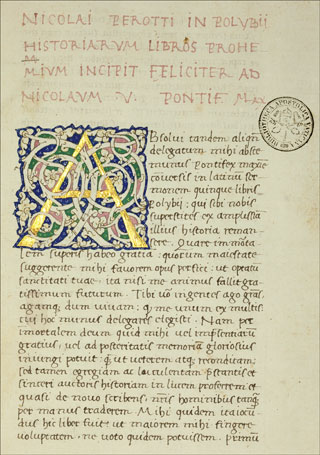 NICOLAI PEROTTI IN POLYBII
HISTORIARVM LIBROS PROHE
MIVM INCIPIT FELICITER AD
NICOLAVM V. PONTIF MAX
Absolui tandem aliqn
delegatum mihi abs te
munus Pontifex maxie
conuersis in latinum ser
monem quinque libris
Polybij: qui sibi nobis
superstites ex amplissa
illius historia reman
sere. Quare
tem superis habeo gratia: quorum maiestate
suggerente mihi fauorem opus perfeci: ut optatu
sanctitati tuae. ita nisi me animus fallit gra
tissimum futurum. Tibi uo ingentes ago gras
agamq dum uiuam: q me unum ex multis
cui hoc munus delegares elegisti. Nam per
immortalem deum quid mihi uel impsentiaru
gratius, uel ad posteritatis memoria gloriosius
inuengi potuit: q ut ueterem atq reconditam:
sed tamen egregiam ac luculentam pstantis et
sinceri auctoris historiam in lucem proferrem et
quasi de nouo scribens, omnis hominibus tanq
per manus traderem. Mihi quidem ita iocu
dus hic liber fuit ut maiorem mihi fingere
uoluptatem, ne uoto quidem potuissem. primu
BIBLIOTHECA APOSTOLICA VATICANA